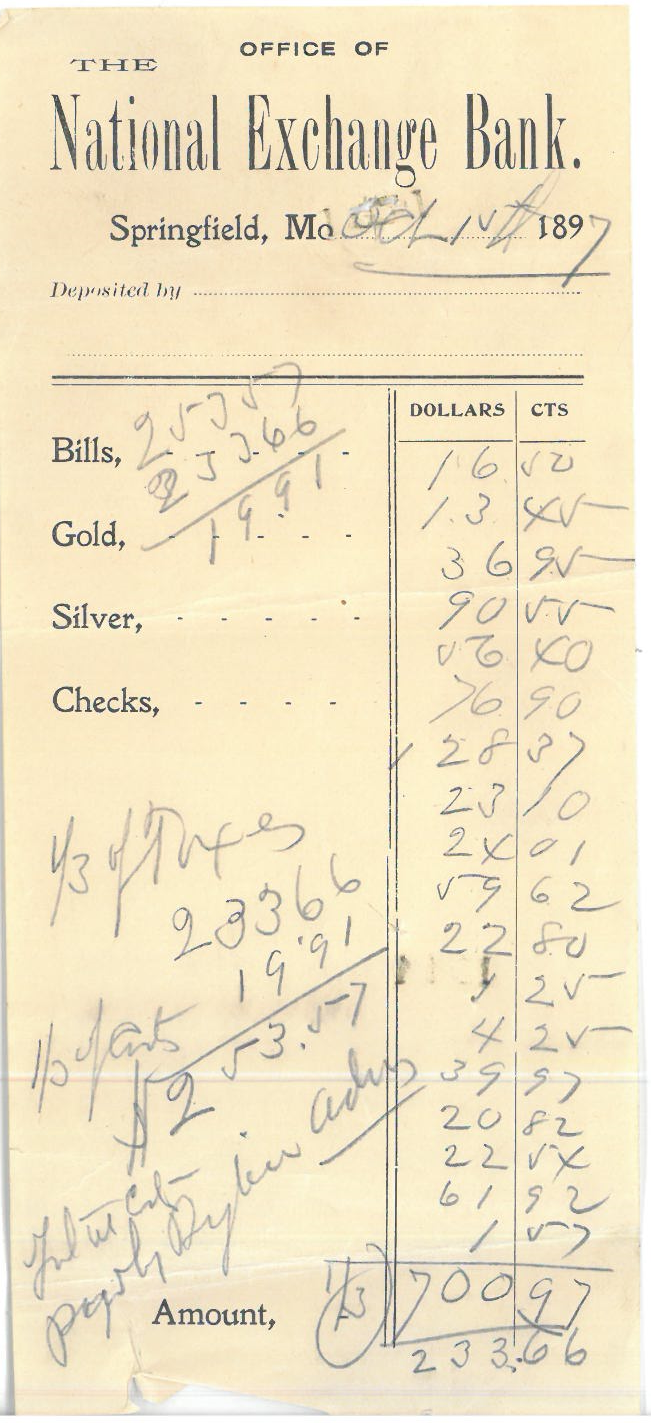 OFFICE OF
THE
National Exchange Bank.
Springfield, Mo Oct 15th 1897
Deposited by
DOLLARS CTS
25357
Bills, 23366
1991
16 50
Gold, 13 45
36 95
Silver, 90 55
56 40
Checks, 76 90
128 37
23 10
1/3 of Taxes 24 01
23366 59 62
19.91 22 80
1 25
1/3 of Costs 4 25
$253.57 39 97
20 82
22 54
61 92
paid by Admr 1 57
Amount, 1/3 700 97
233.66